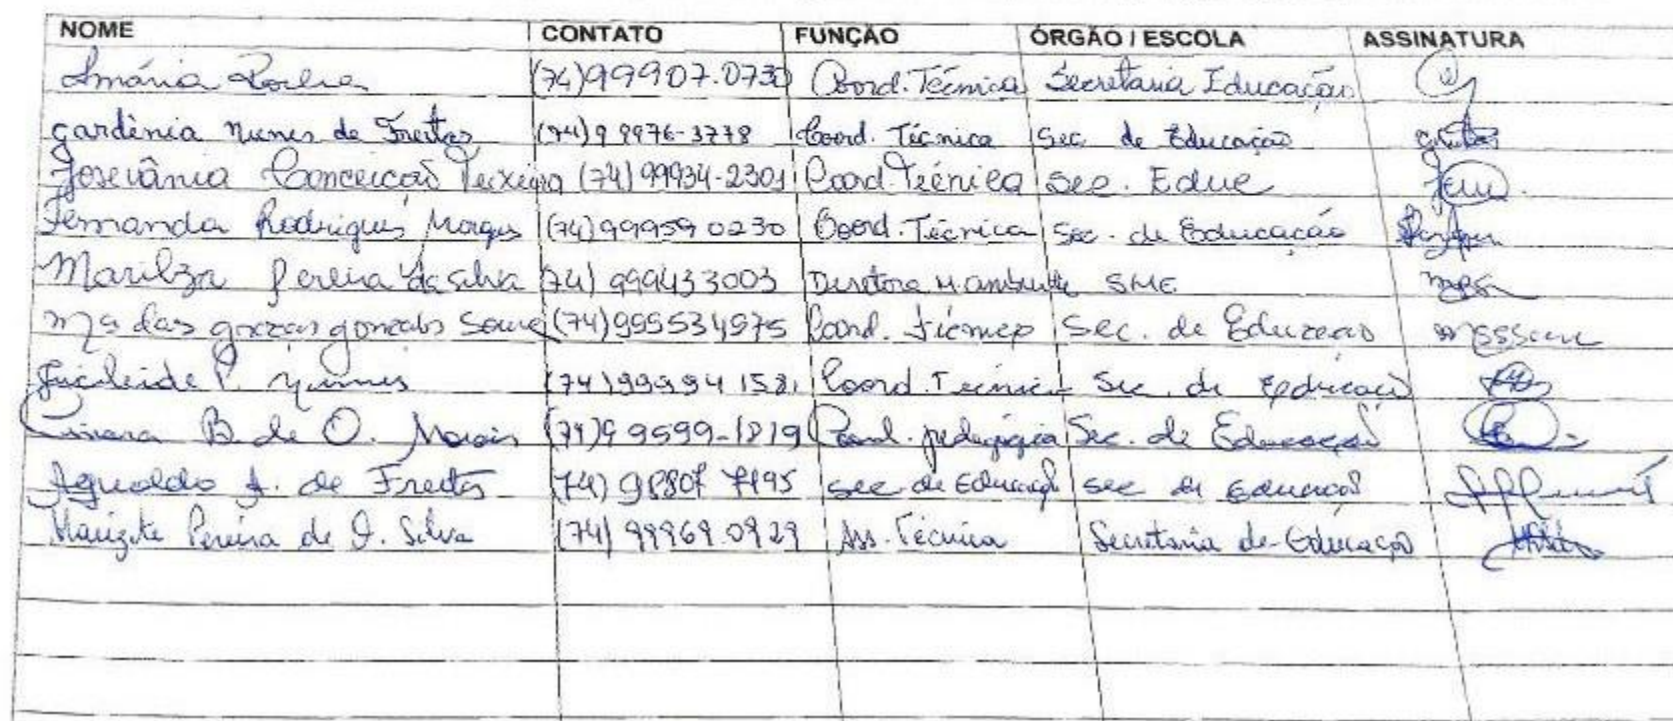 NOME CONTATO FUNÇÃO ÓRGÃO / ESCOLA ASSINATURA
(74)99907.0730 Coord. Técnica Secretaria Educação
Gardênia Nunes de Freitas (74)9 9976-3778 Coord. Técnica Sec. de Educação
Josevânia Conceição Teixeira (74) 99934-2301 Coord. Técnica Sec. Educ
Fernanda Rodrigues (74)99959 0230 Coord. Técnica Sec. de Educação
Marilza Pereira da Silva (74) 999433003 Diretora SME
Mª das Graças Gonzales (74)999534975 Coord. Sec. de Educação
Lucleide P. (74)99994 1581 Coord. Técnica Sec. de Educação
B. de O. Morais (74)9 9599-1819 Coord. pedagógica Sec. de Educação
Agnaldo de Freitas (74) 98807 7195 Sec de Educação Sec de Educação
Marizete Pereira de Silva (74) 99969.0929 Ass. Técnica Secretaria de Educação